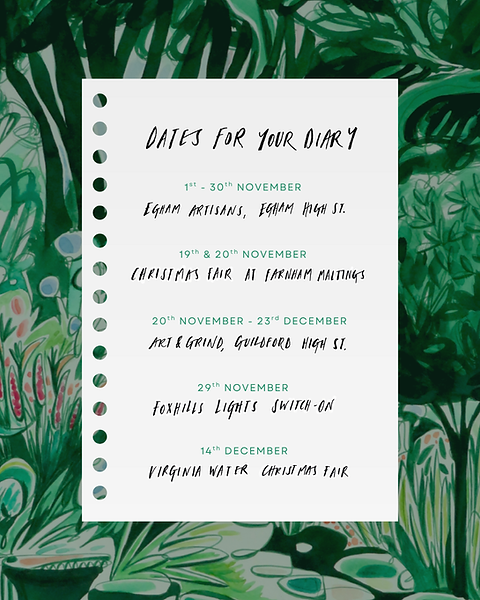 DATES FOR YOUR DIARY
1st - 30th NOVEMBER
EGHAM ARTISANS, EGHAM HIGH ST.
19th & 20th NOVEMBER
CHRISTMAS FAIR AT FARNHAM MALTINGS
20th NOVEMBER - 23rd DECEMBER
ART & GRIND, GUILDFORD HIGH ST.
29th NOVEMBER
FOXHILLS LIGHTS SWITCH-ON
14th DECEMBER
VIRGINIA WATER CHRISTMAS FAIR